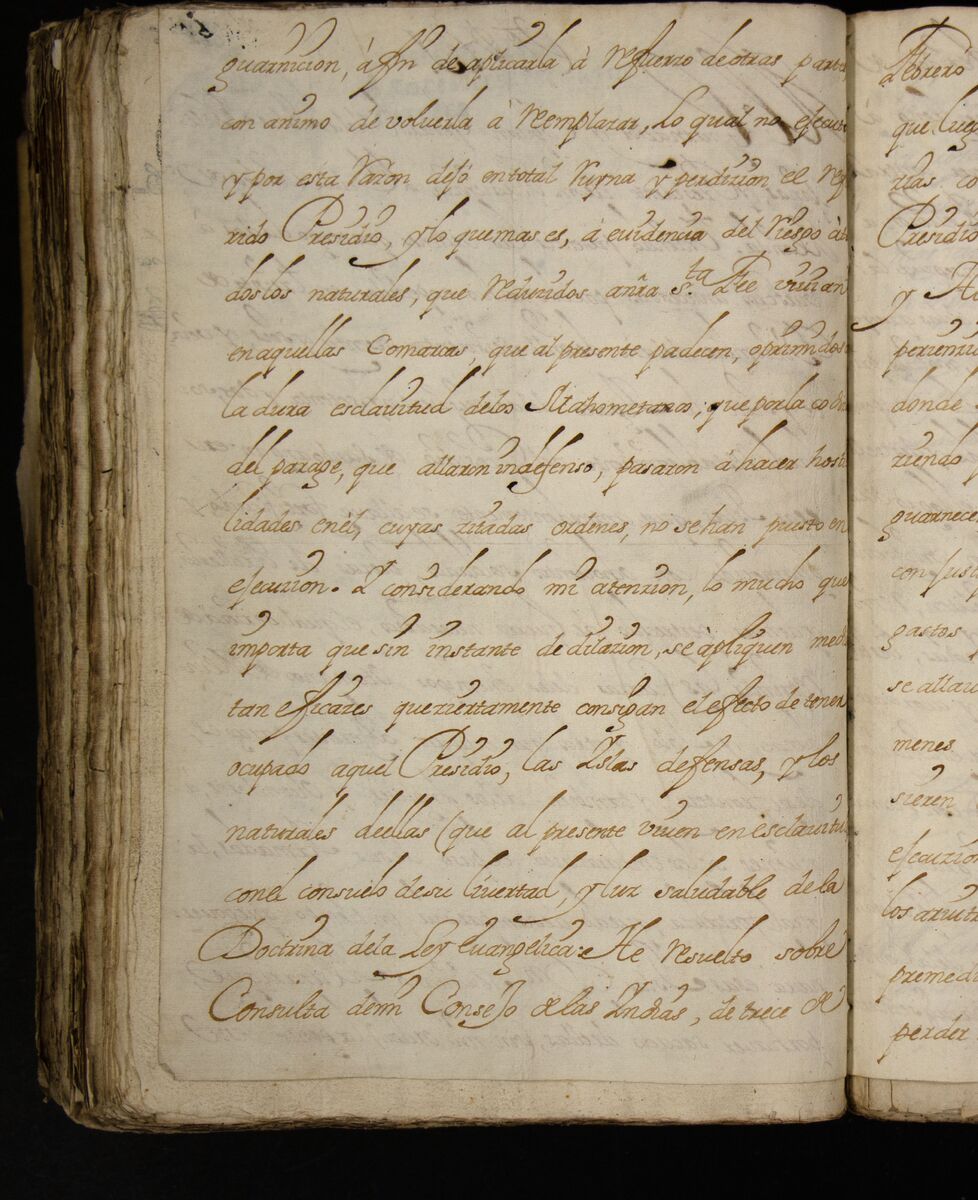 guarnicion, á fin de aplicarla à refuerzo de otras partes
con animo de volverla à reemplazar, lo qual no ejecutò
y por esta razon dejò en total ruyna y perdizion, el refe
rido Presidio, y lo que mas es, á evidencia del riesgo à to
dos los naturales, que reduzidos a nr̃a s.ta Fee vivian
en aquellas Comarcas, que al presente padecen, oprimidos
la dura esclavitud de los Mahometanos; que por la
del parage, que allaron indefenso, pasaron á hacer hosti
lidades en él, cuyas zitadas ordenes, no se han puesto en
ejecuzion. Y considerando mi atenzion, lo mucho que
importa que sin instante de dilazion, se àpliquen medi
tan eficazes que ziertamente consigan el efecto de tener
ocupado aquel Presidio, las Yslas defensas, y los
naturales de ellas (que al presente viven en esclavitu
con el consuelo de su livertad, y luz saludable de la
Doctrina de la Ley Evangelica: He resuelto sobre
Consulta de mi Consejo de las Yndias, de trece de
Febrero
que lueg
rlas co
Presidio
y
perienzi
donde
riendo
guarnece
con
gastos
se allar
menes
sieren
ejecuzion
los
premedi
perder